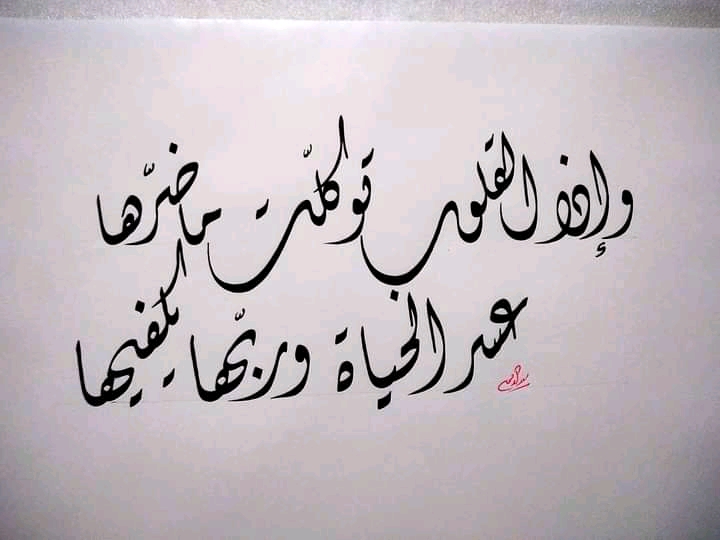 وإذا القلوب توكلّت ما ضرّها
عسر الحياة وربّها يكفيها